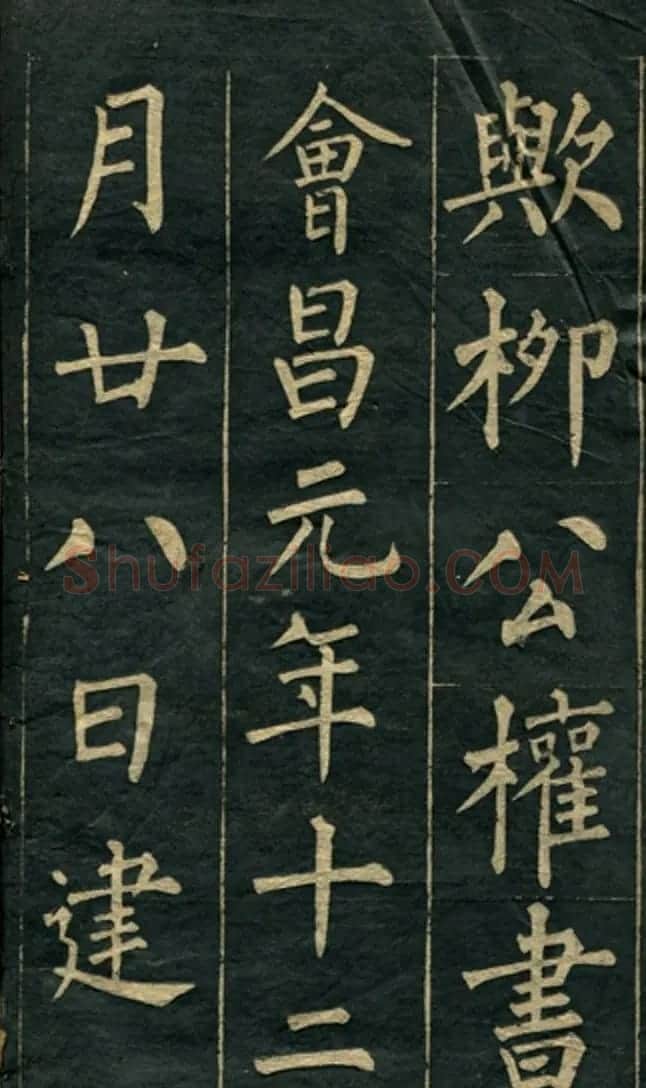 歟柳公權書
會昌元年十二
月廿八日建
Shufaziliao.COM